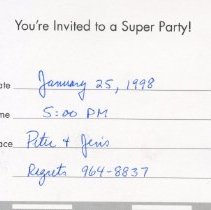 You're Invited to a Super Party!
ate January 25, 1998
me 5:00 PM
ace Pete + Jeri's
Regrets 964-8837